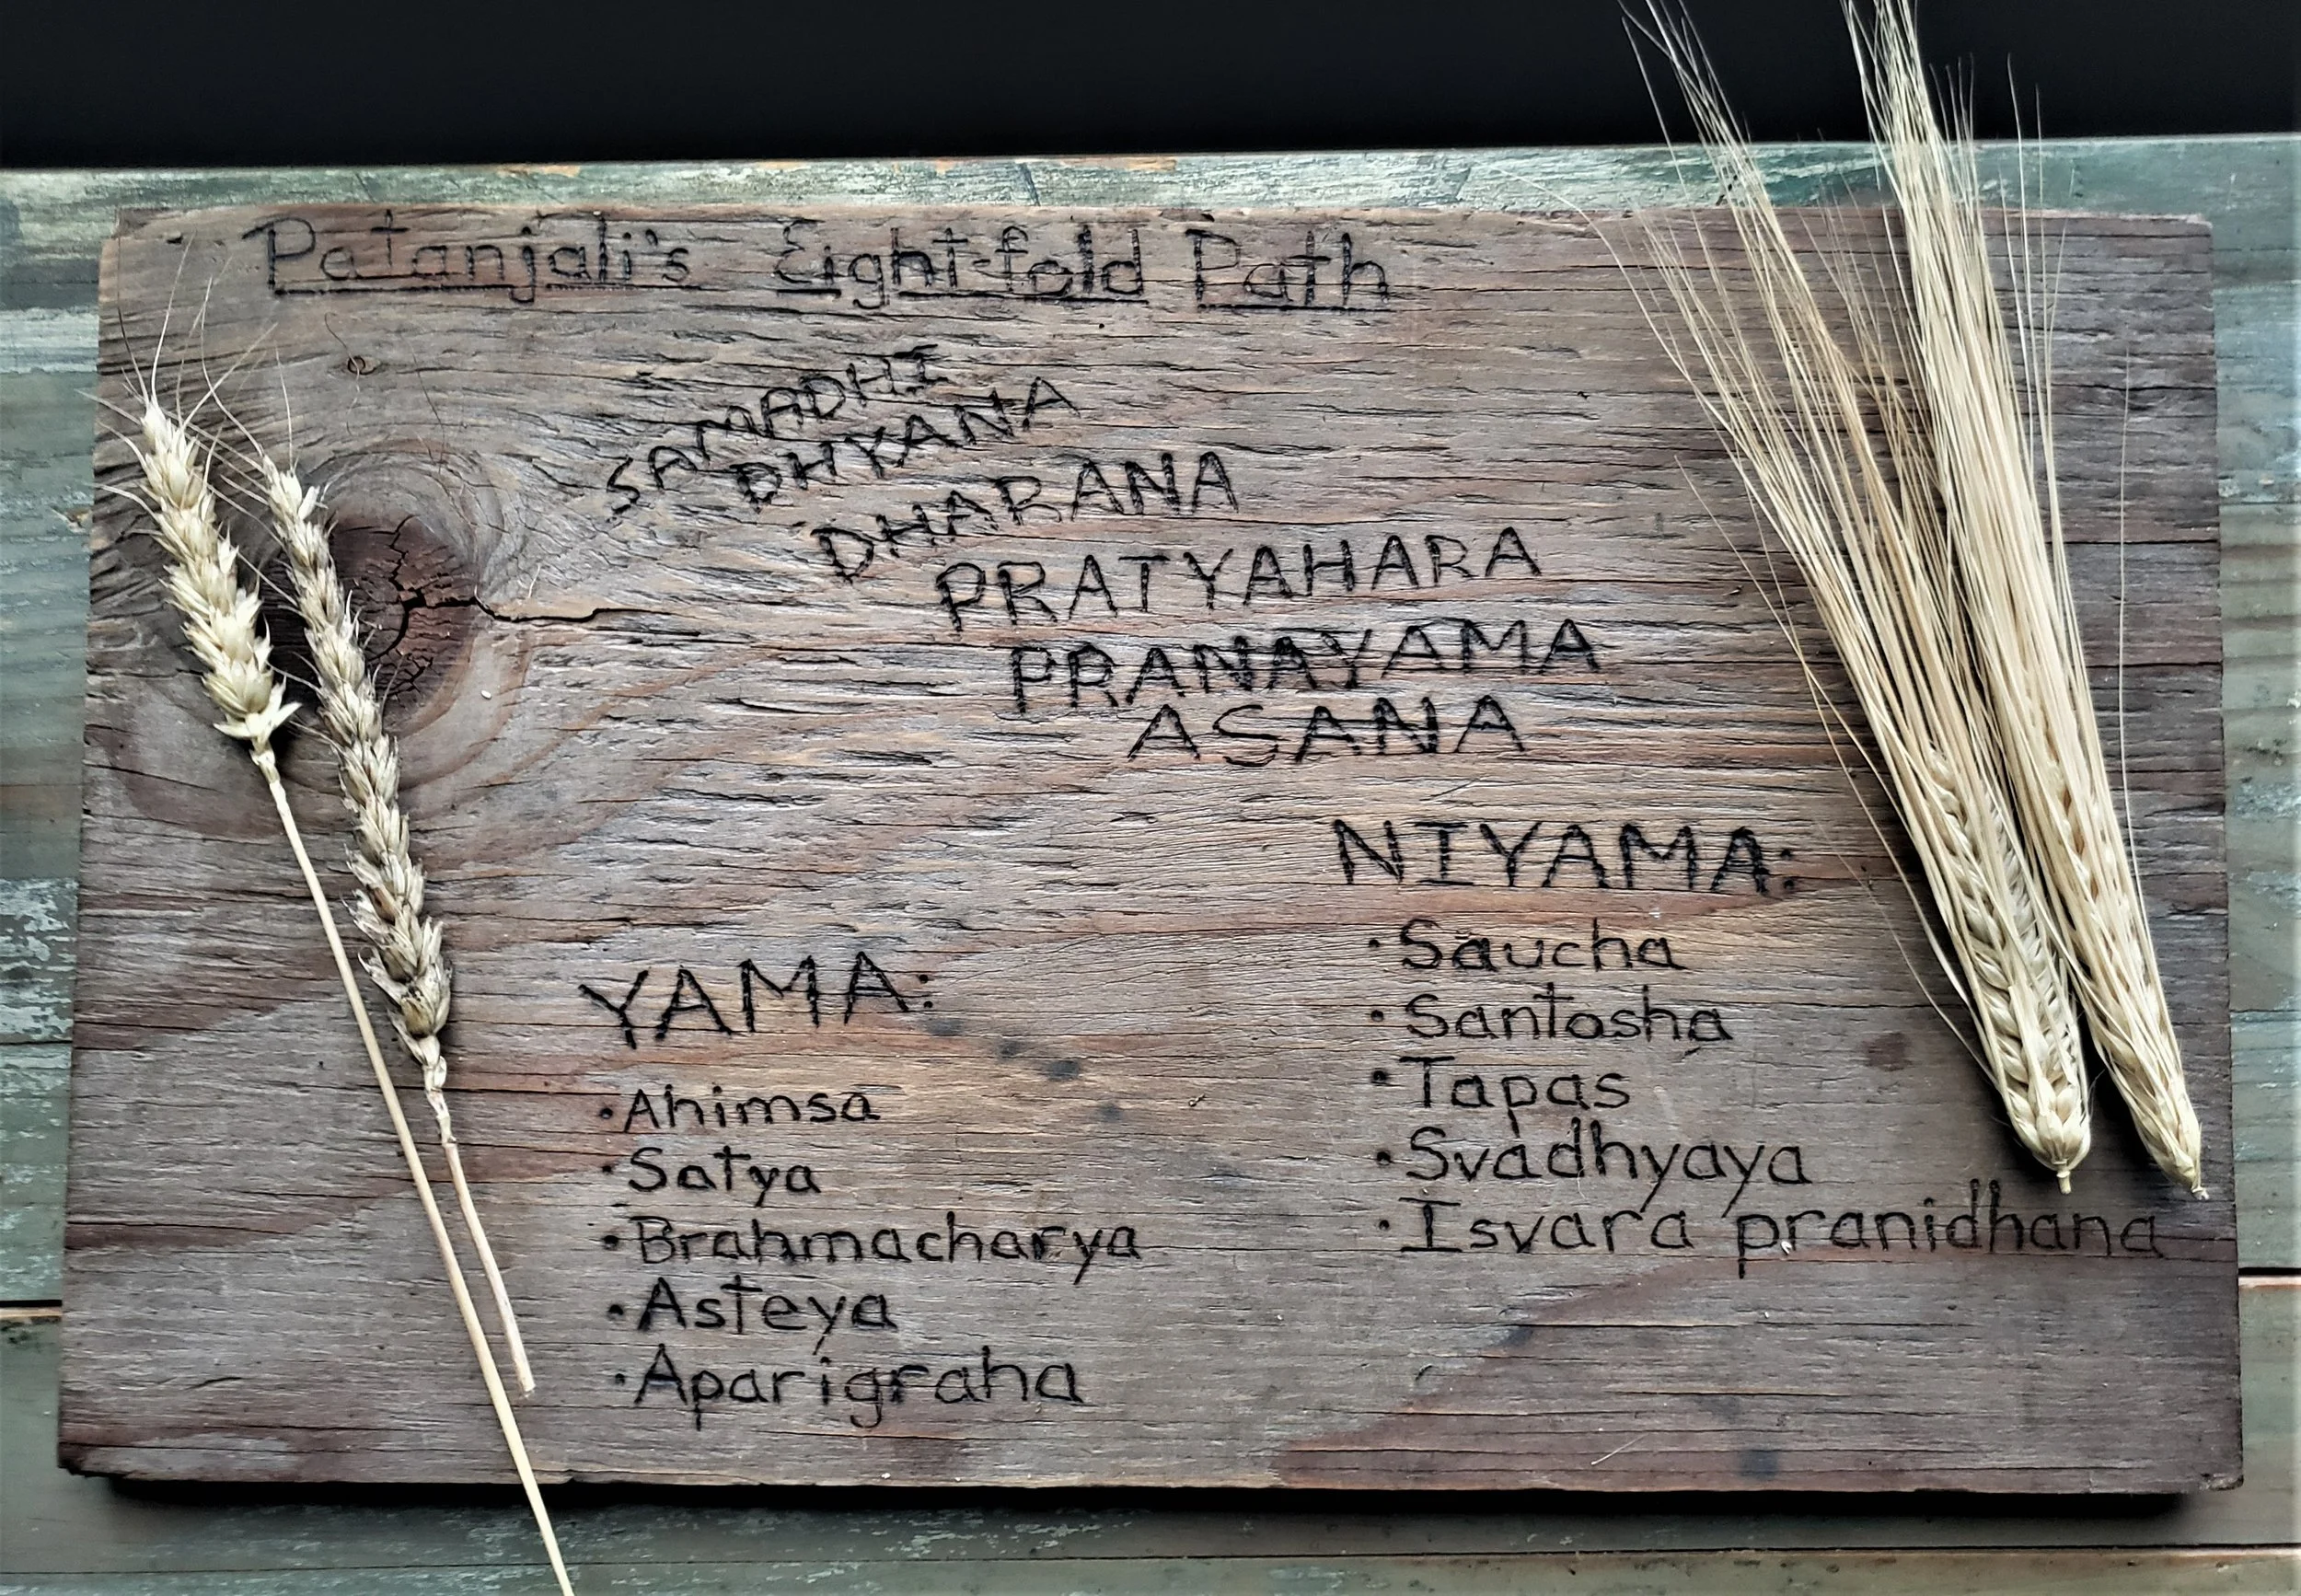 Patanjali's Eight-fold Path
SAMADHI
DHYANA
DHARANA
PRATYAHARA
PRANAYAMA
ASANA
NIYAMA:
• Saucha
• Santosha
• Tapas
• Svadhyaya
• Isvara pranidhana
YAMA:
• Ahimsa
• Satya
• Brahmacharya
• Asteya
• Aparigraha